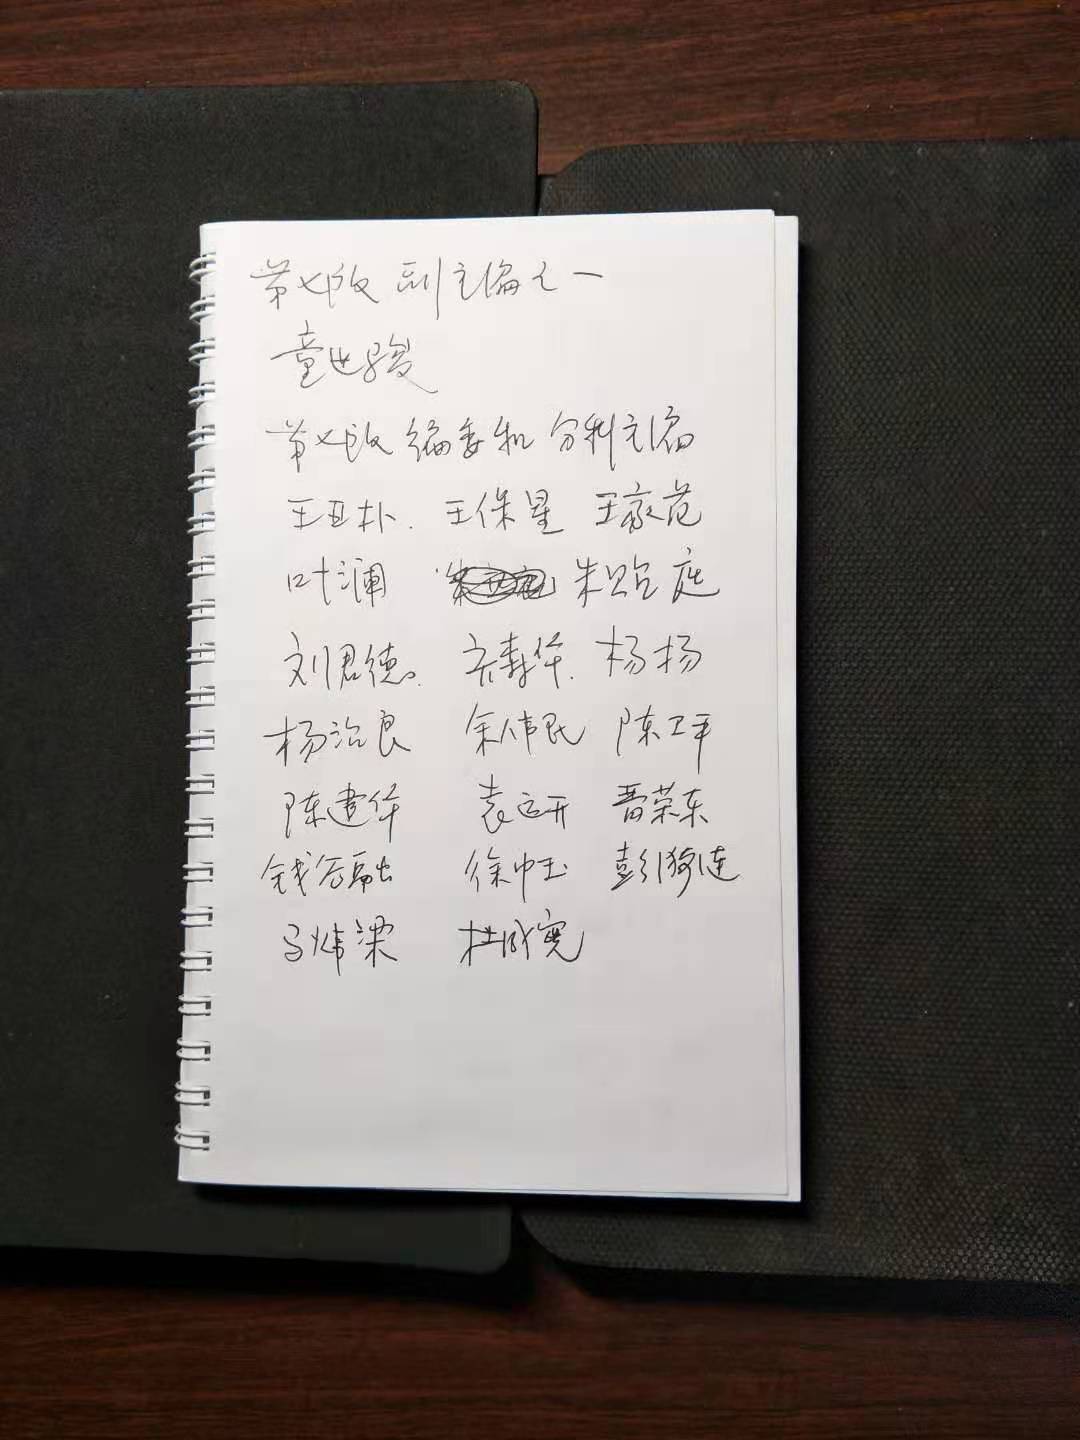 第七版副主编之一
童世骏
第七版编委和分科主编
王亚朴.王保星 王家范
叶澜 朱贻庭
刘君德.齐森华.杨扬
杨治良 余伟民 陈卫平
陈建华 袁运开 晋荣东
钱谷融 徐中玉 彭漪涟
马炜梁 杜成宪